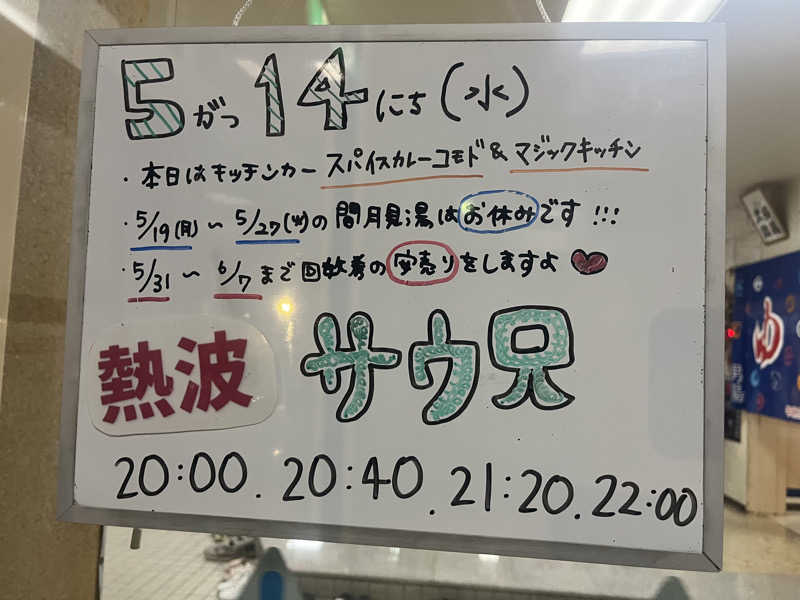 5がつ14にち(水)
・本日はキッチンカー スパイスカレーコモド & マジックキッチン
・5/19(月)～5/27(火)の間月見湯はお休みです!!!
・5/31～6/7まで回数券の安売りをしますよ♥
熱波 サウ兄
20:00. 20:40. 21:20. 22:00
ゆ